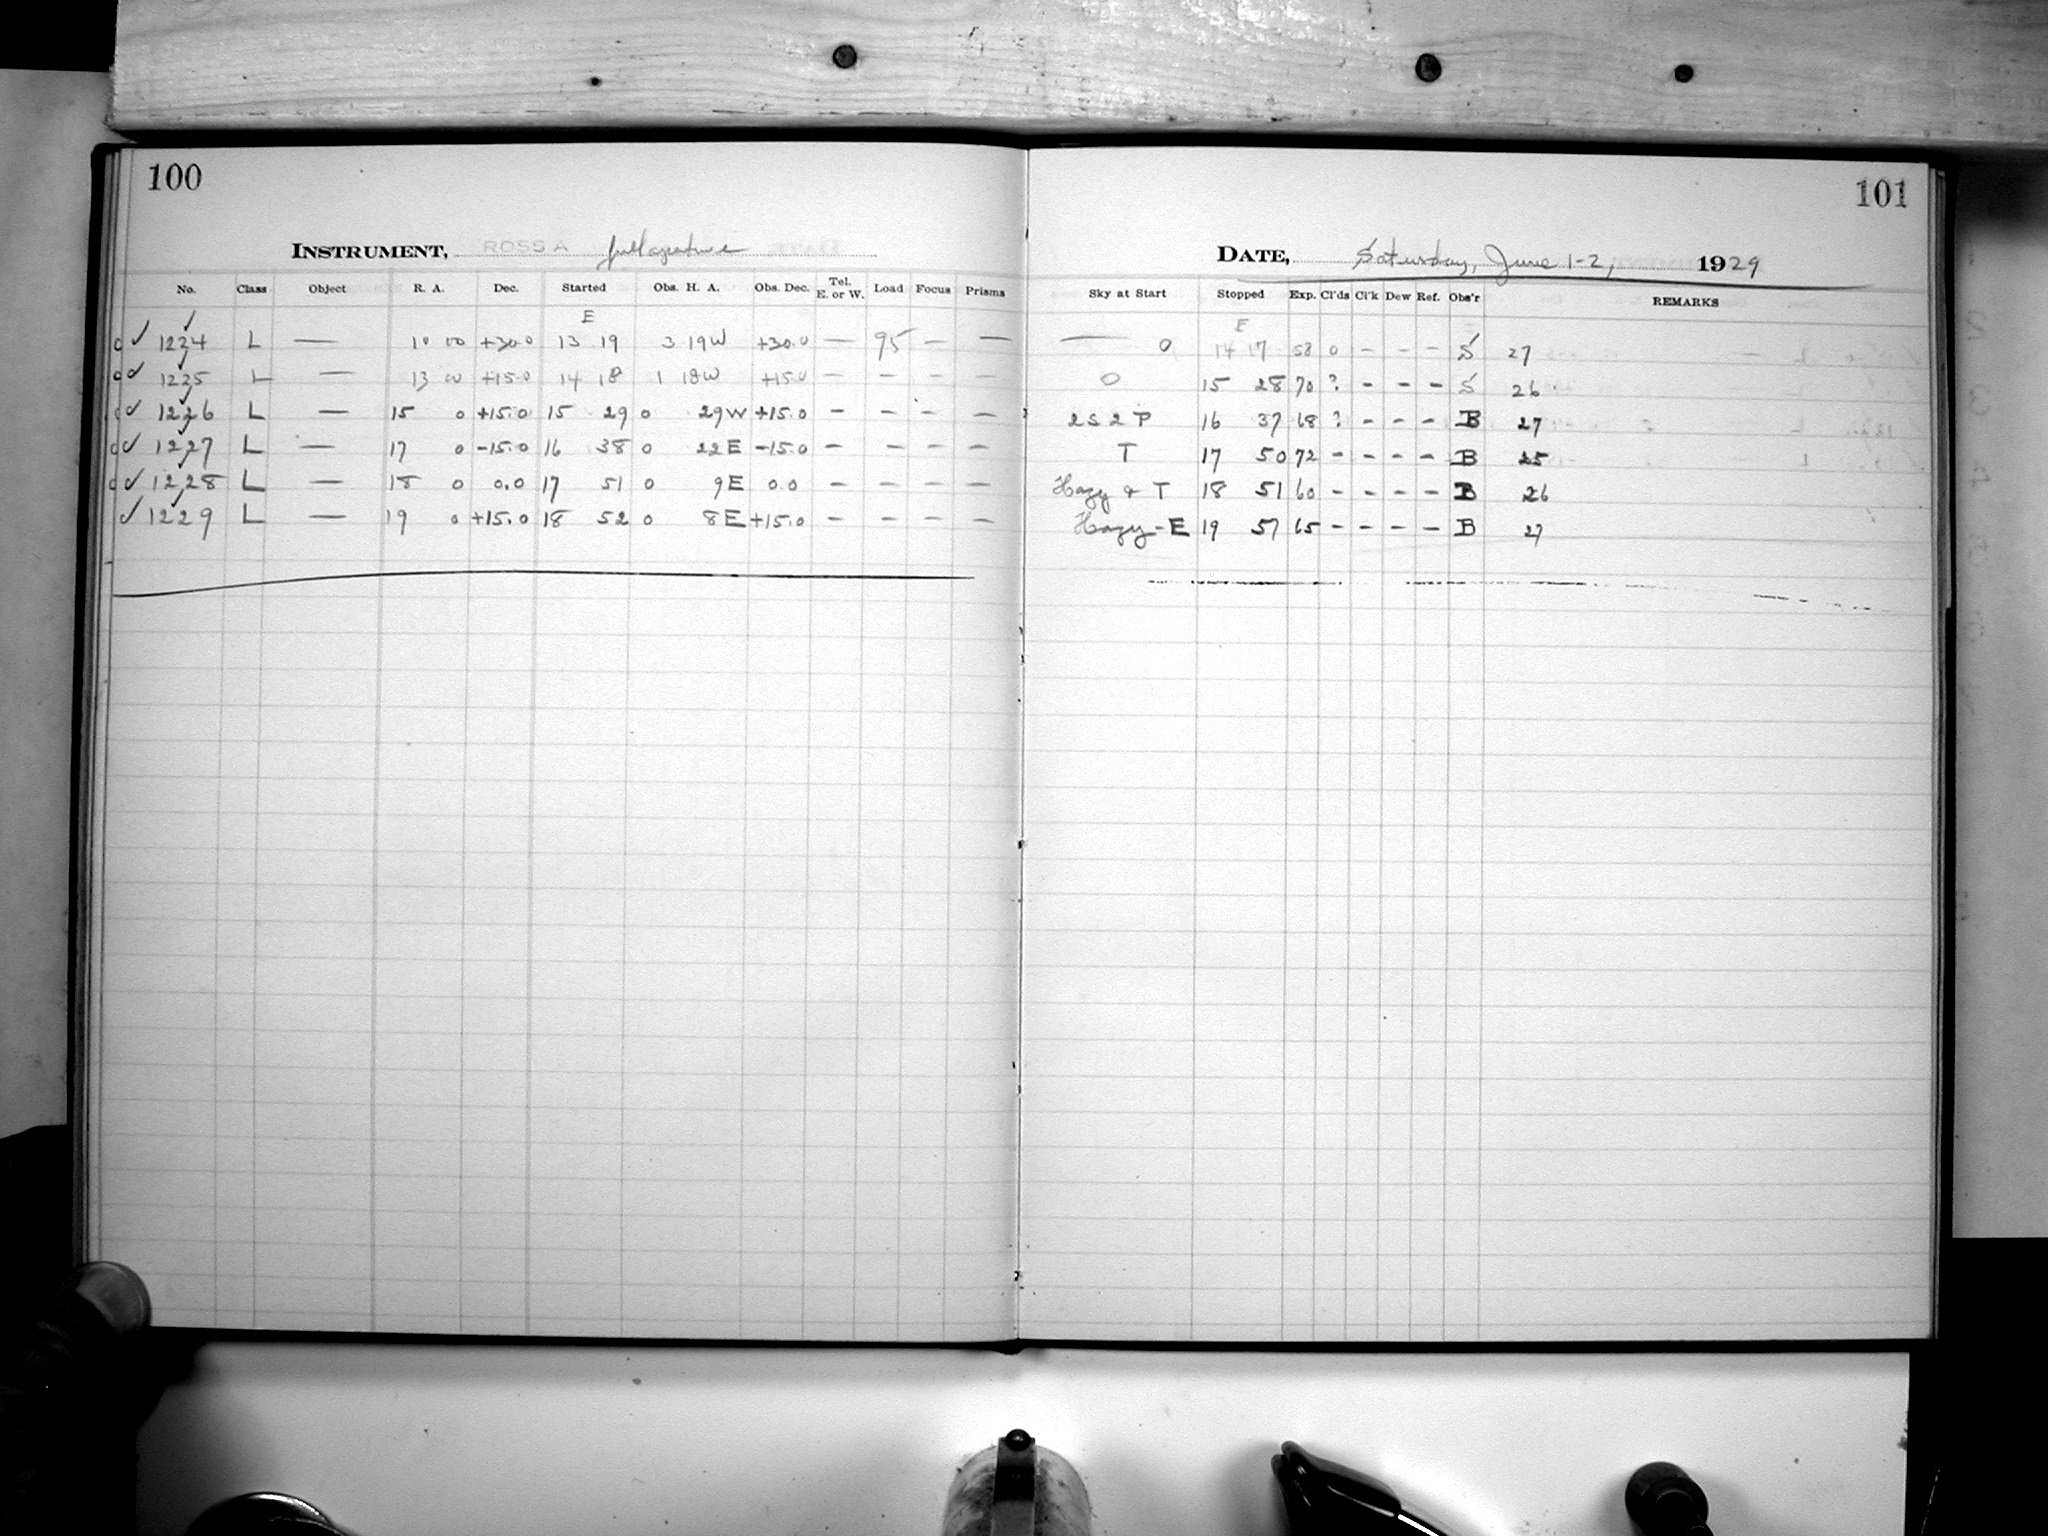 100
INSTRUMENT, ROSS A full aperture
No. Class Object R. A. Dec. Started Obs. H. A. Obs. Dec. Tel. E. or W. Load Focus Prisms
E
o ✓ 1224 L — 10 00 +30.0 13 19 3 19W +30.0 — 95 — —
o ✓ 1225 L — 13 00 +15.0 14 18 1 18W +15.0 — — — —
o ✓ 1226 L — 15 0 +15.0 15 29 0 29W +15.0 — — — —
o ✓ 1227 L — 17 0 -15.0 16 38 0 22E -15.0 — — — —
o ✓ 1228 L — 18 0 0.0 17 51 0 9E 0.0 — — — —
✓ 1229 L — 19 0 +15.0 18 52 0 8E +15.0 — — — —
101
DATE, Saturday, June 1-2, 1929
Sky at Start Stopped Exp. Cl'ds Cl'k Dew Ref. Obs'r REMARKS
E
— 0 14 17 58 0 - - - S 27
0 15 28 70 ? - - - S 26
2 S 2 P 16 37 68 ? - - - B 27
T 17 50 72 - - - - B 25
Hazy & T 18 51 60 - - - - B 26
Hazy - E 19 57 65 - - - - B 27